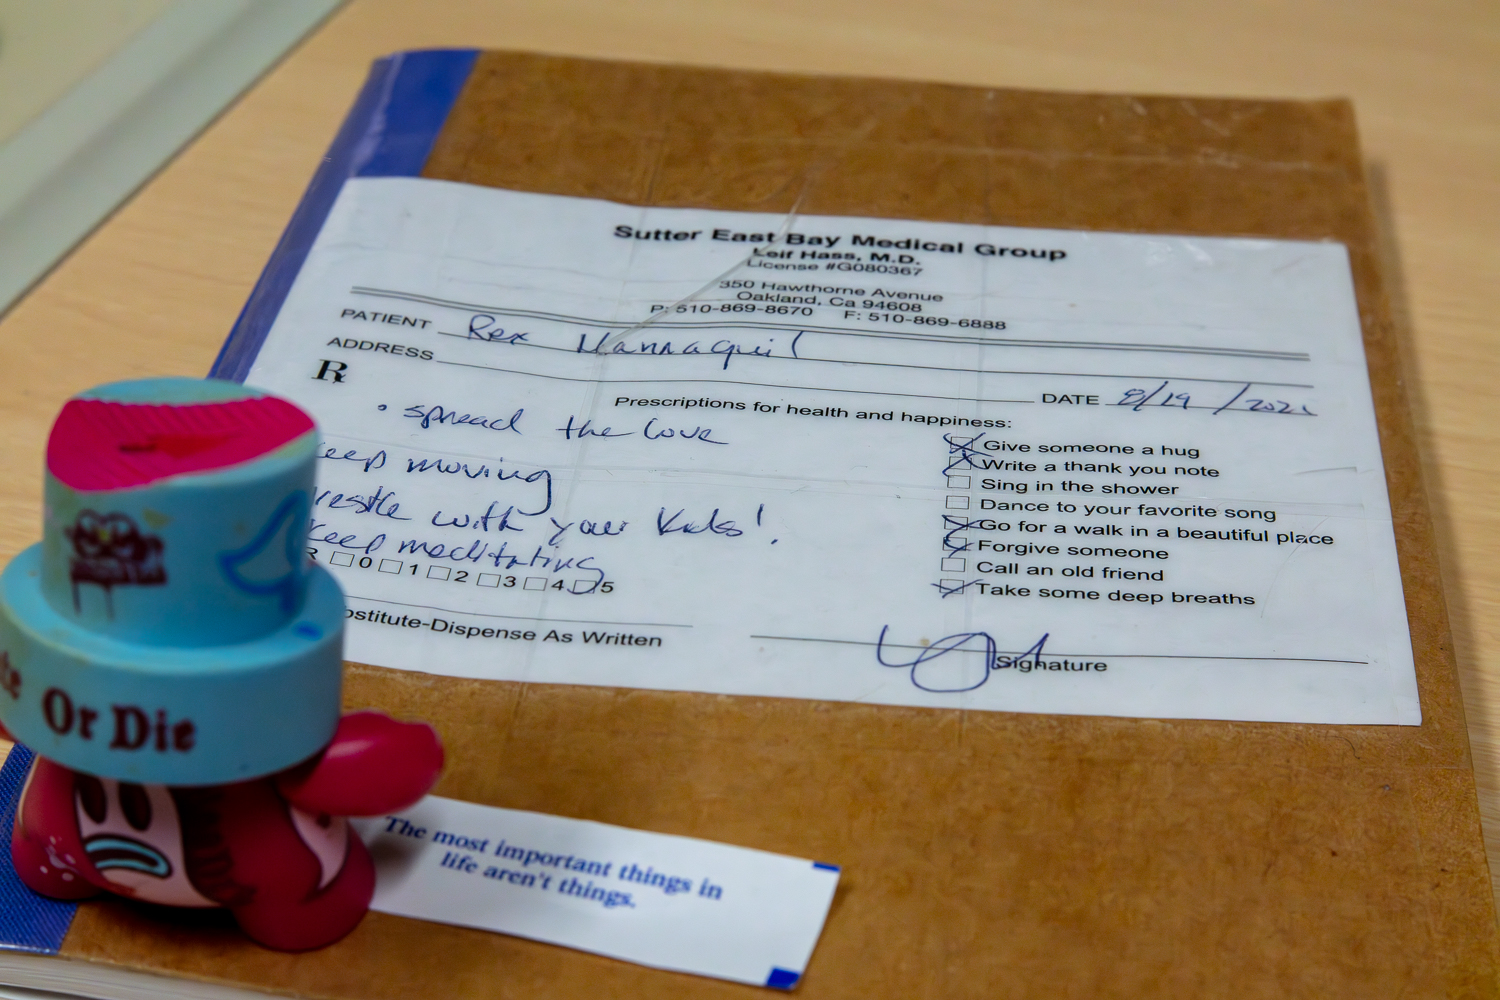 Sutter East Bay Medical Group
Leif Hass, M.D.
License #G080367
350 Hawthorne Avenue
Oakland, Ca 94608
P: 510-869-8670 F: 510-869-6888
PATIENT Rex
ADDRESS
Rx
DATE 8/19/
Prescriptions for health and happiness:
• spread the love
eep moving
restle with your kids!
Keep meditating
Give someone a hug
Write a thank you note
Sing in the shower
Dance to your favorite song
Go for a walk in a beautiful place
Forgive someone
Call an old friend
Take some deep breaths
R 0 1 2 3 4 5
ostitute-Dispense As Written
Signature
Or Die
The most important things in
life aren't things.